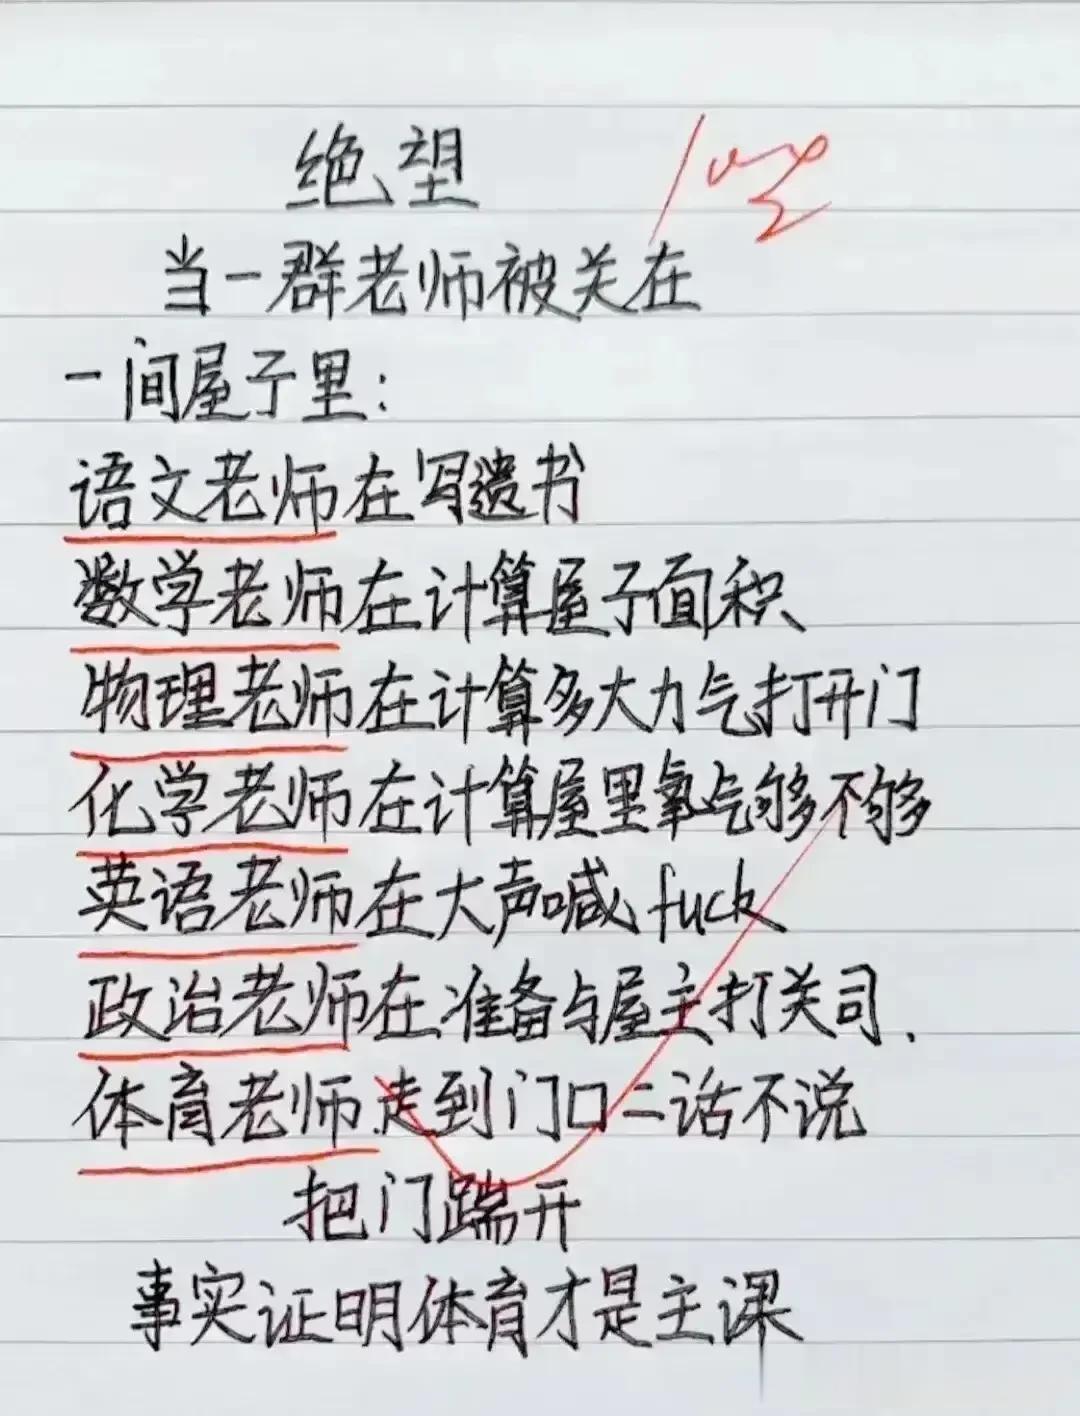 绝望
当一群老师被关在
一间屋子里:
语文老师在写遗书
数学老师在计算屋子面积
物理老师在计算多大力气打开门
化学老师在计算屋里氧气够不够
英语老师在大声喊fuck
政治老师在准备与屋主打关司.
体育老师走到门口二话不说
把门踹开
事实证明体育才是主课